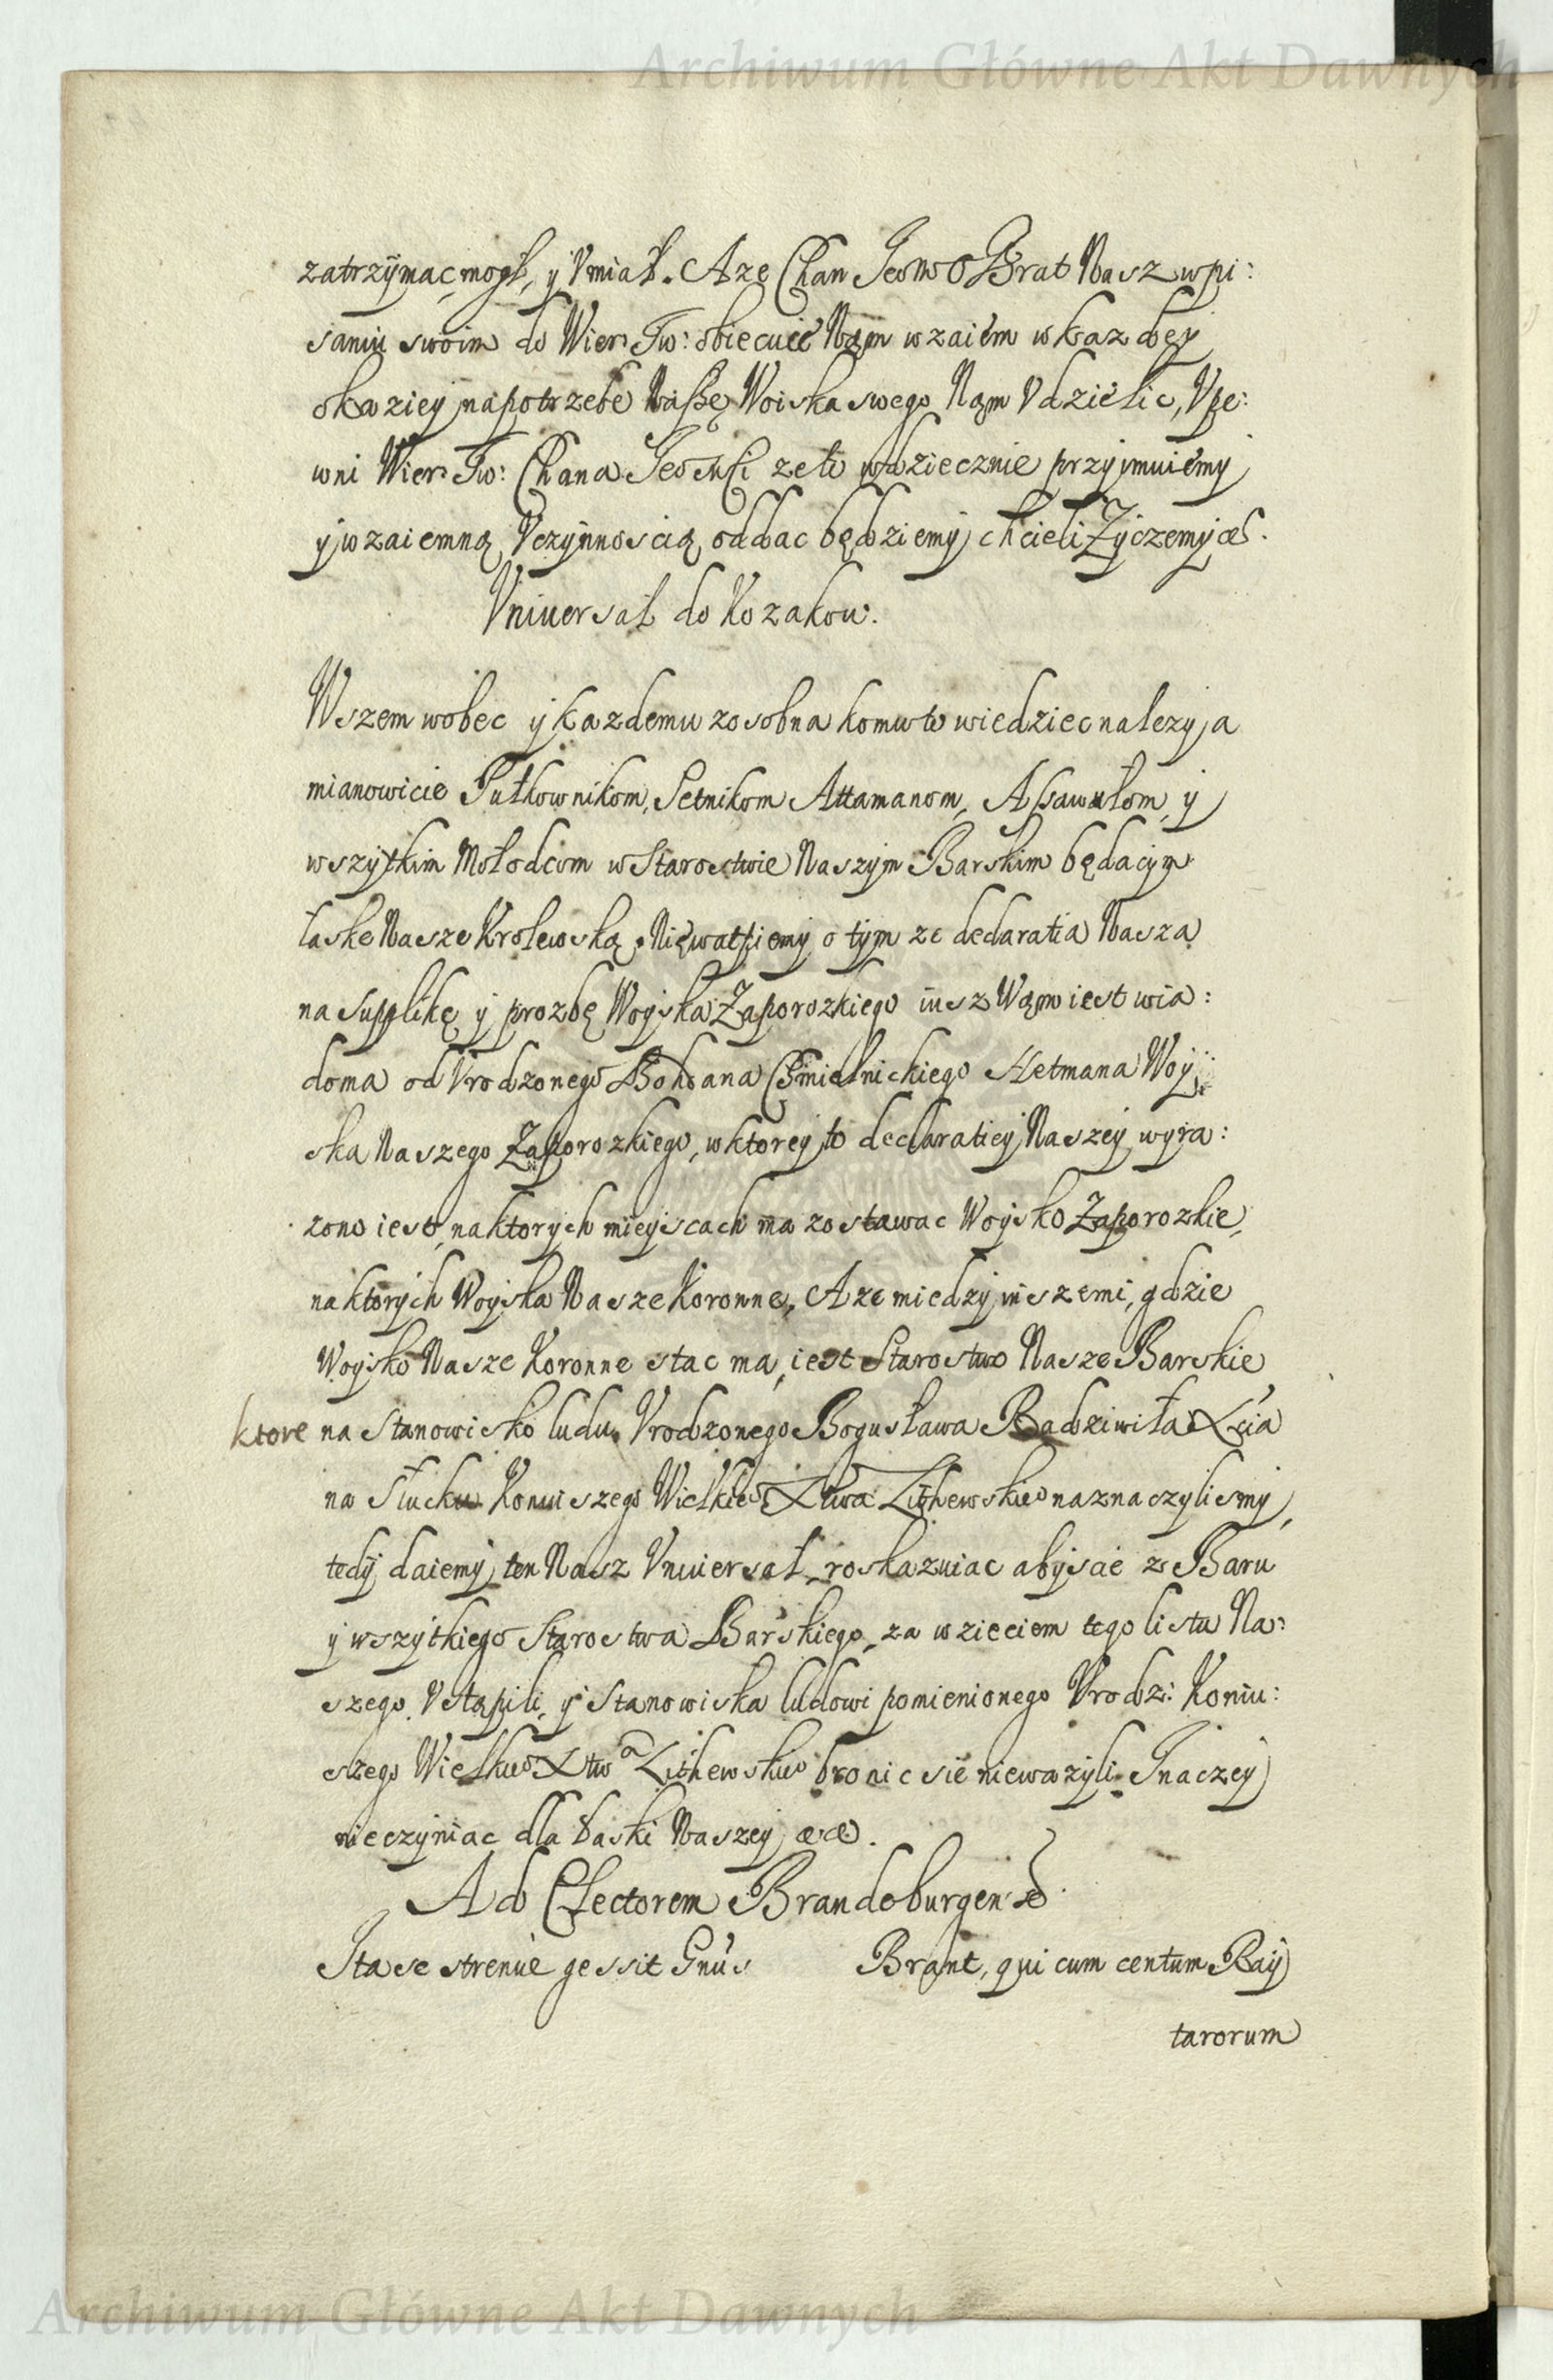 Archiwum Główne Akt Dawnych
zatrzymac mogł, y Vmiał. A ze Chan Jeo Mo Brat Nasz wpi:
saniu swoim do Wiern Tw: obiecuie Nam wzaiem w kazdey
okaziey na potrzebe Naszę Woiska swego Nam Vdzielic, Vpe:
wni Wiern Tw: Chana Jeo Msci ze to wdziecznie przyimuiemy
y wzaiemną Vczynnoscią oddac będziemy chcieli Zyczemy etc.
Vniuersał do Kozakow.
Wszem wobec y kazdemu zosobna komu to wiedziec nalezy, a
mianowicie Pułkownikom, Setnikom Attamanom, Assawułom, y
wszytkim Mołodcom w Starostwie Naszym Barskim będacym
łaske Nasze Krolewską. Niewatpiemy o tym ze declaratia Nasza
na supplikę y prozbę Woyska Zaporozkiego iusz Wam iest wia:
doma od Vrodzonego Bohdana Chmielnickiego Hetmana Woy:
ska Naszego Zaporozkiego, w ktorey to declaratiey Naszey wyra:
zono iest, na ktorych mieyscach ma zostawac Woysko Zaporozkie,
na ktorych Woyska Nasze Koronne, A ze miedzy inszemi, gdzie
Woysko Nasze Koronne stac ma, iest Starostwo Nasze Barskie
ktore na Stanowisko ludu Vrodzonego Bogusława Radziwiła Xcia
na Słucku Koniuszego Wielkieo Xtwa Lithewskieo naznaczylismy,
tedy daiemy ten Nasz Vniuersał, roskazuiac abyscie z Baru
y wszytkiego Starostwa Barskiego, za wzieciem tego listu Na:
szego Vstąpili, y Stanowiska ludowi pomienionego Vrodz: Koniu:
szego Wielkieo Xtwa Lithewskieo bronic sie niewazyli. Jnaczey
nieczyniac dla łaski Naszey, etc.
Ad Electorem Brandeburgensem
Ita se strenue gessit Gnus Brant, qui cum centum Ray
tarorum
Archiwum Główne Akt Dawnych